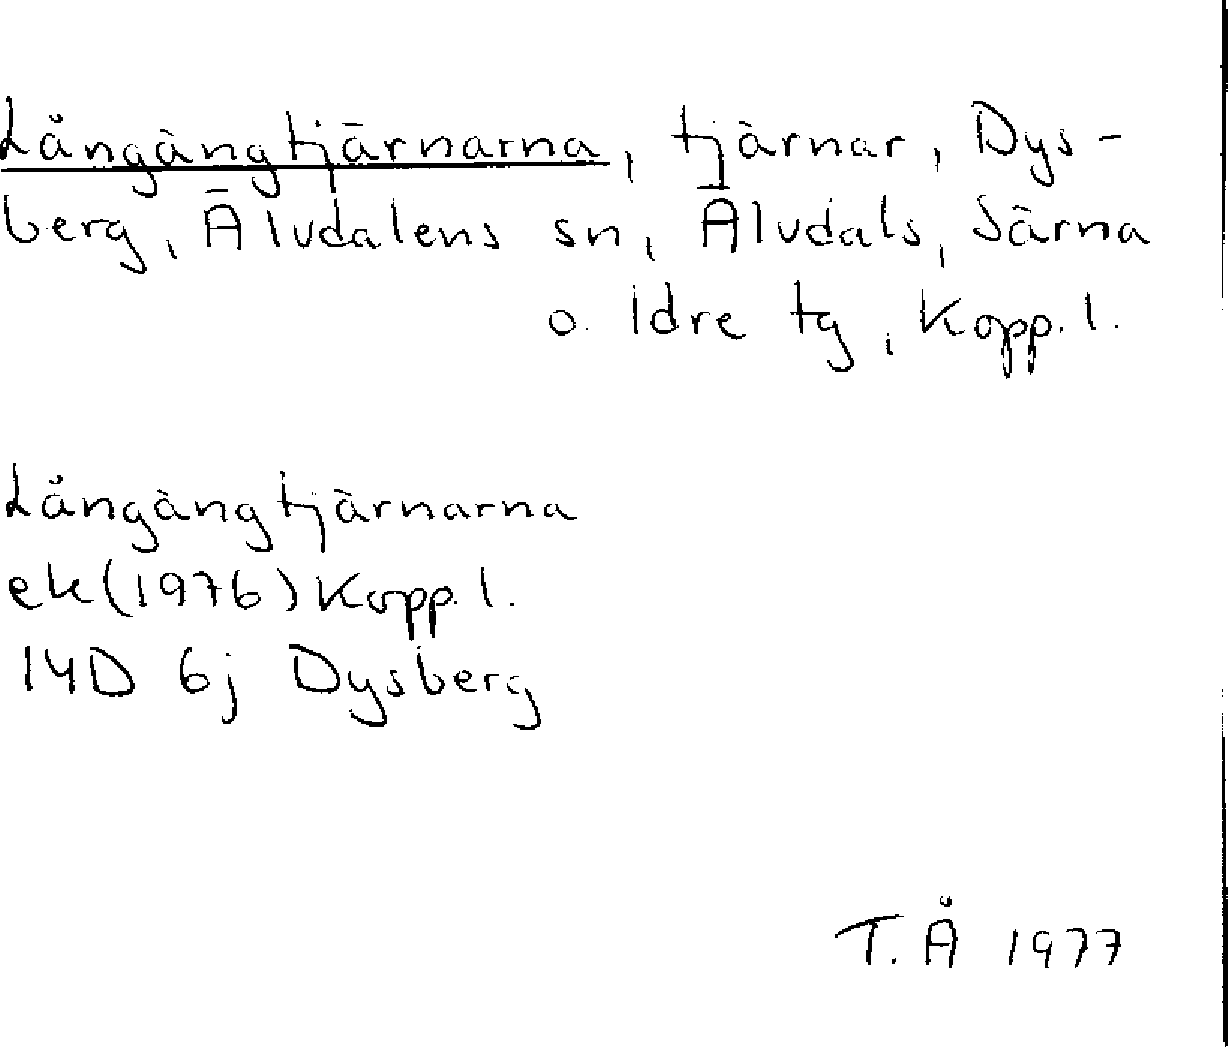 Långängtjärnarna, tjärnar, Dys-
berg, Älvdalens sn, Älvdals, Särna
o. Idre tg, Kopp. l.
Långängtjärnarna
ek (1976) Kopp. l.
14D 6j Dysberg
T. Å 1977